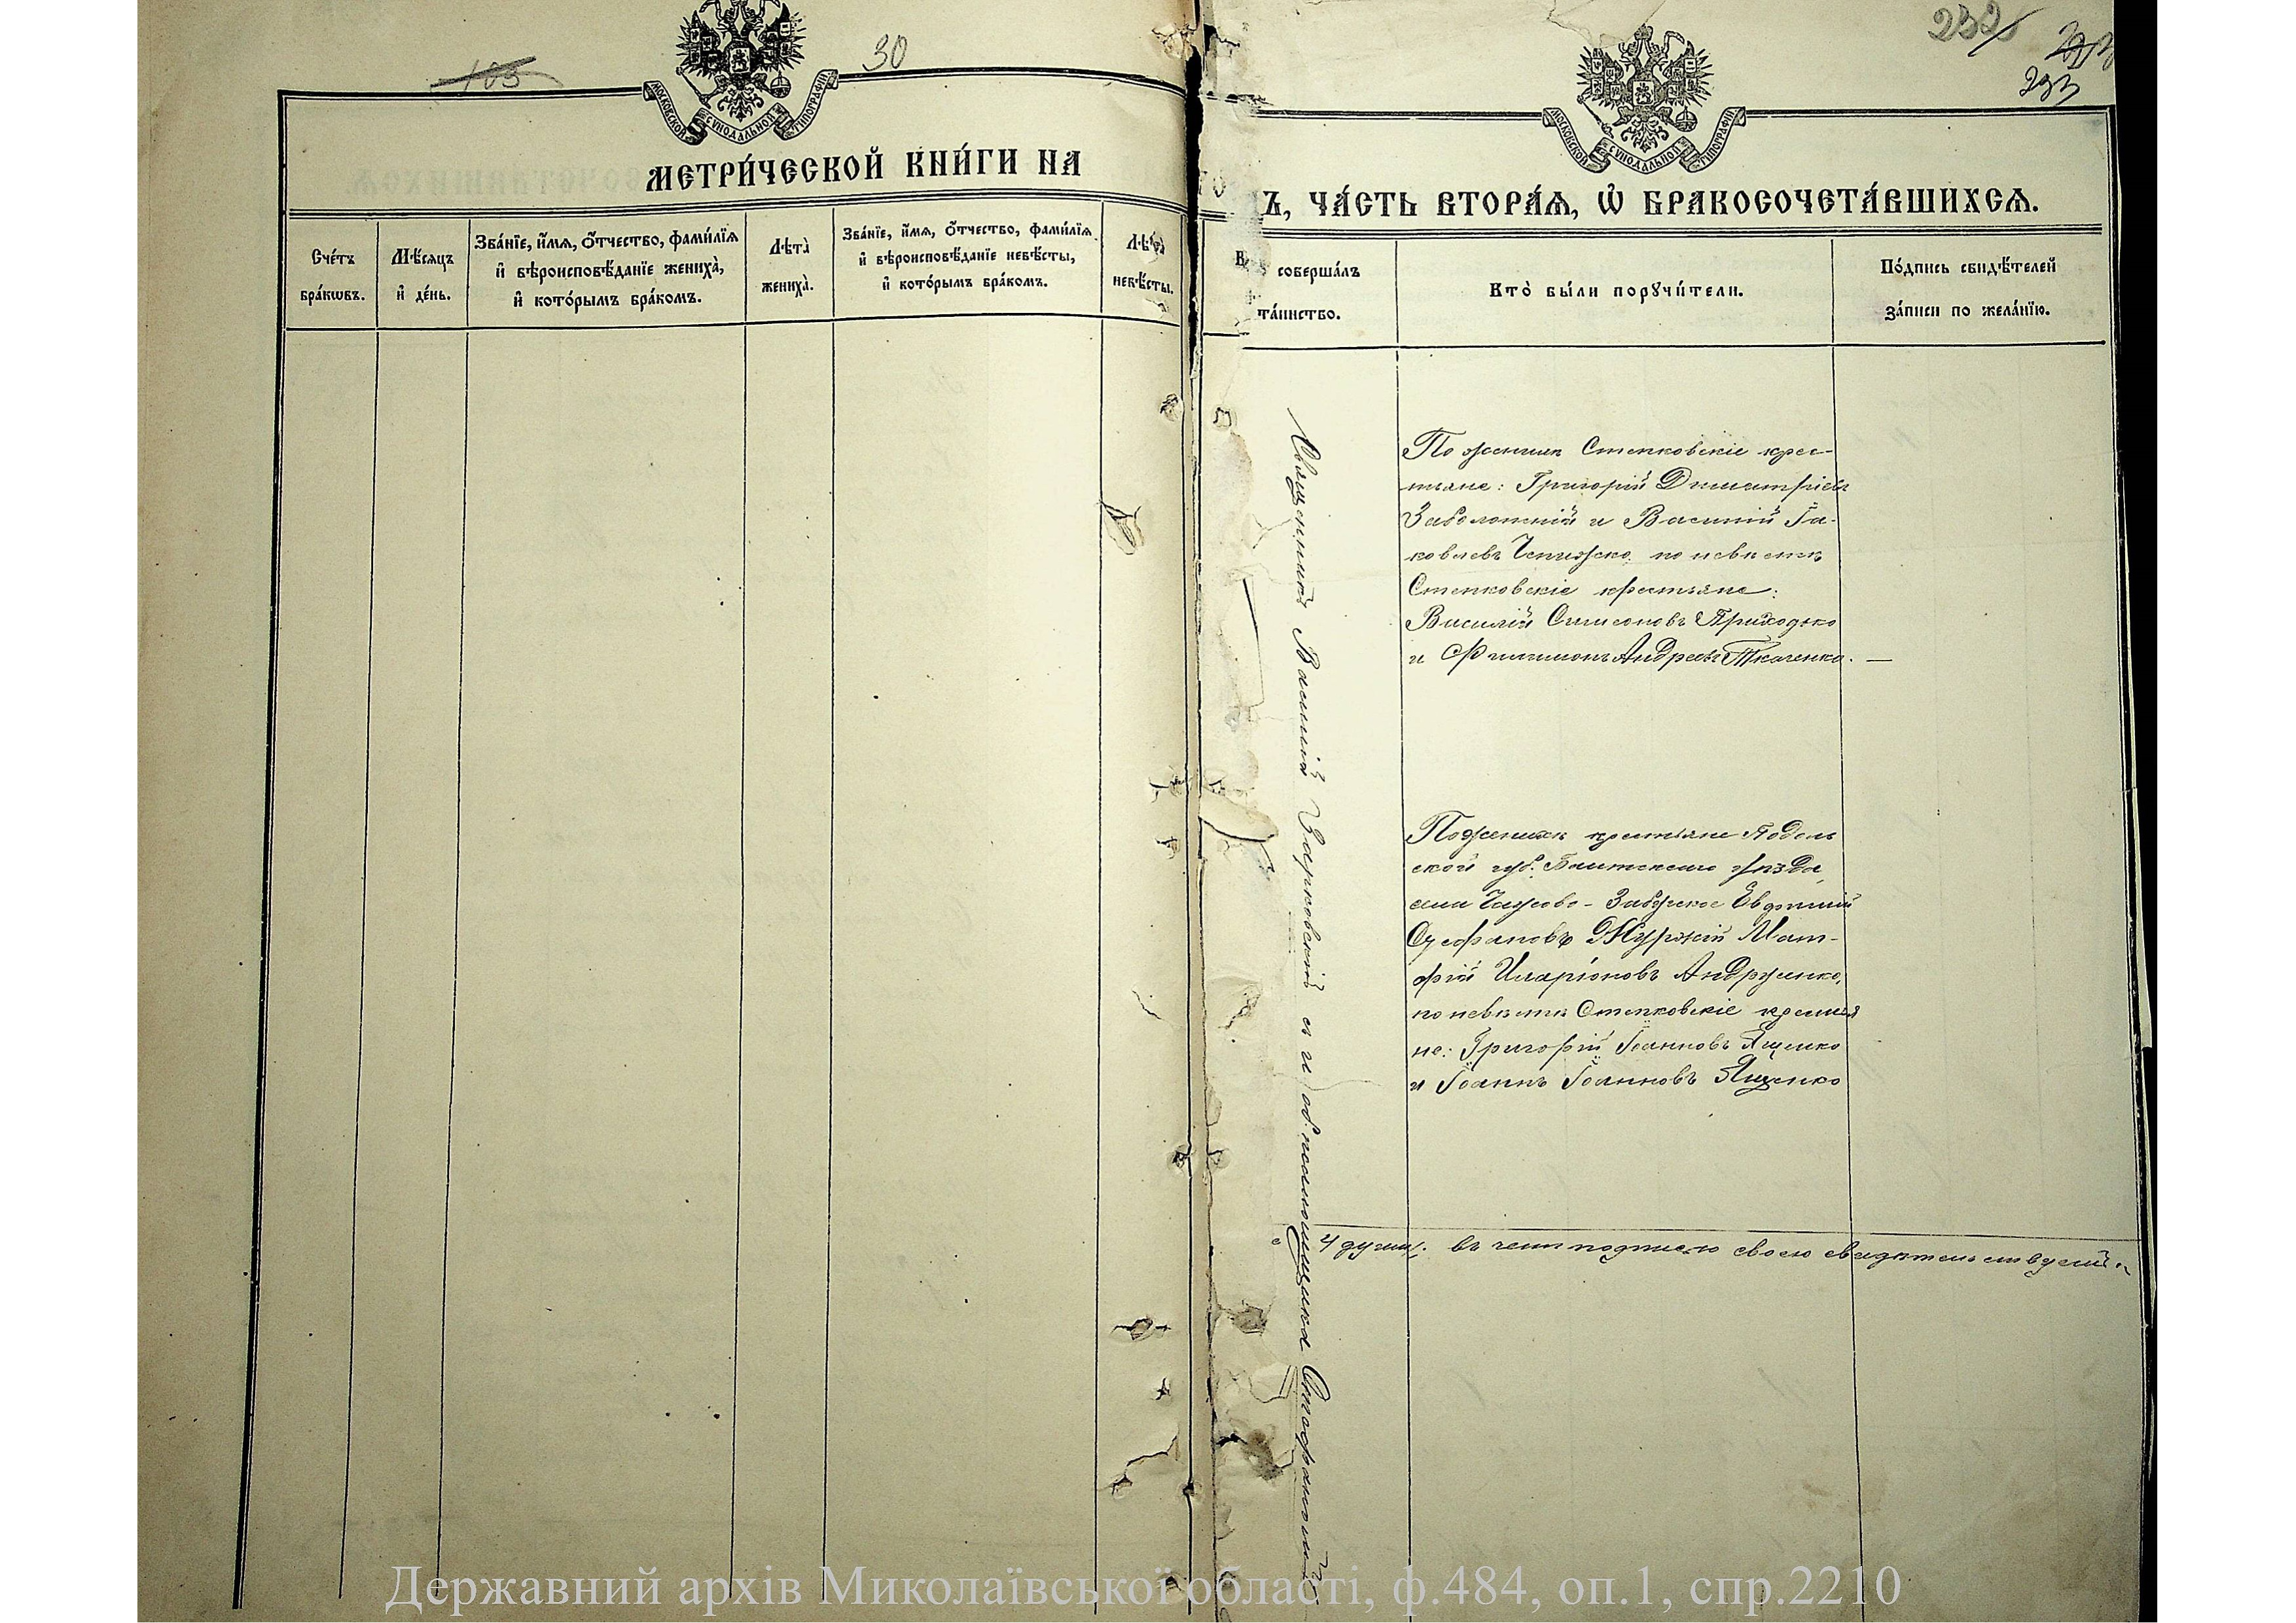 103
30
МОСКОВСКОЙ СѴНОДАЛЬНОЙ ТИПОГРАФІИ
МЕТРИ́ЧЕСКОЙ КНИ́ГИ НА
Сче́тъ бра́кѡвъ.
Мѣ́сяцъ и҆ де́нь.
Зва́нїе, и҆́мѧ, ѻ҆́тчество, фами́лїѧ
и҆ вѣроисповѣ́данїе жениха̀,
и҆ кото́рымъ бра́комъ.
Лѣта̀ жениха̀.
Зва́нїе, и҆́мѧ, ѻ҆́тчество, фами́лїѧ
и҆ вѣроисповѣ́данїе невѣ́сты,
и҆ кото́рымъ бра́комъ.
Лѣта̀ невѣ́сты.
232
233
МОСКОВСКОЙ СѴНОДАЛЬНОЙ ТИПОГРАФІИ
Ъ, ЧА́СТЬ ВТОРА́Ѧ, Ѡ҆ БРАКОСОЧЕТА́ВШИХСѦ.
соверша́лъ
та́инство.
Кто̀ бы́ли порꙋчи́тели.
По́дпись свидѣ́телей
за́писи по жела́нїю.
Священникъ Василій Зарковскій съ и. об. псаломщика Стефановичъ
По женихѣ Степковскіе крес-
тьяне: Григорій Димитріевъ
Заболотній и Василій Іа-
ковлевъ Чепижко, по невѣстѣ
Степковскіе крестьяне:
Василій Симеоновъ Приходько
и Филимонъ Андреевъ Ткаченко. —
По женихѣ крестьяне Подоль
ской губ. Балтскаго уѣзда,
села Чаусово-Забугское Евфимій
Стефановъ Журжій Мат-
фій Иларіоновъ Андрущенко,
по невѣстѣ Степковскіе крестья
не: Григорій Іоанновъ Ященко
и Іоаннъ Іоанновъ Ященко
4 души. въ чемъ подписью своею свидѣтельствуемъ
Державний архів Миколаївської області, ф.484, оп.1, спр.2210